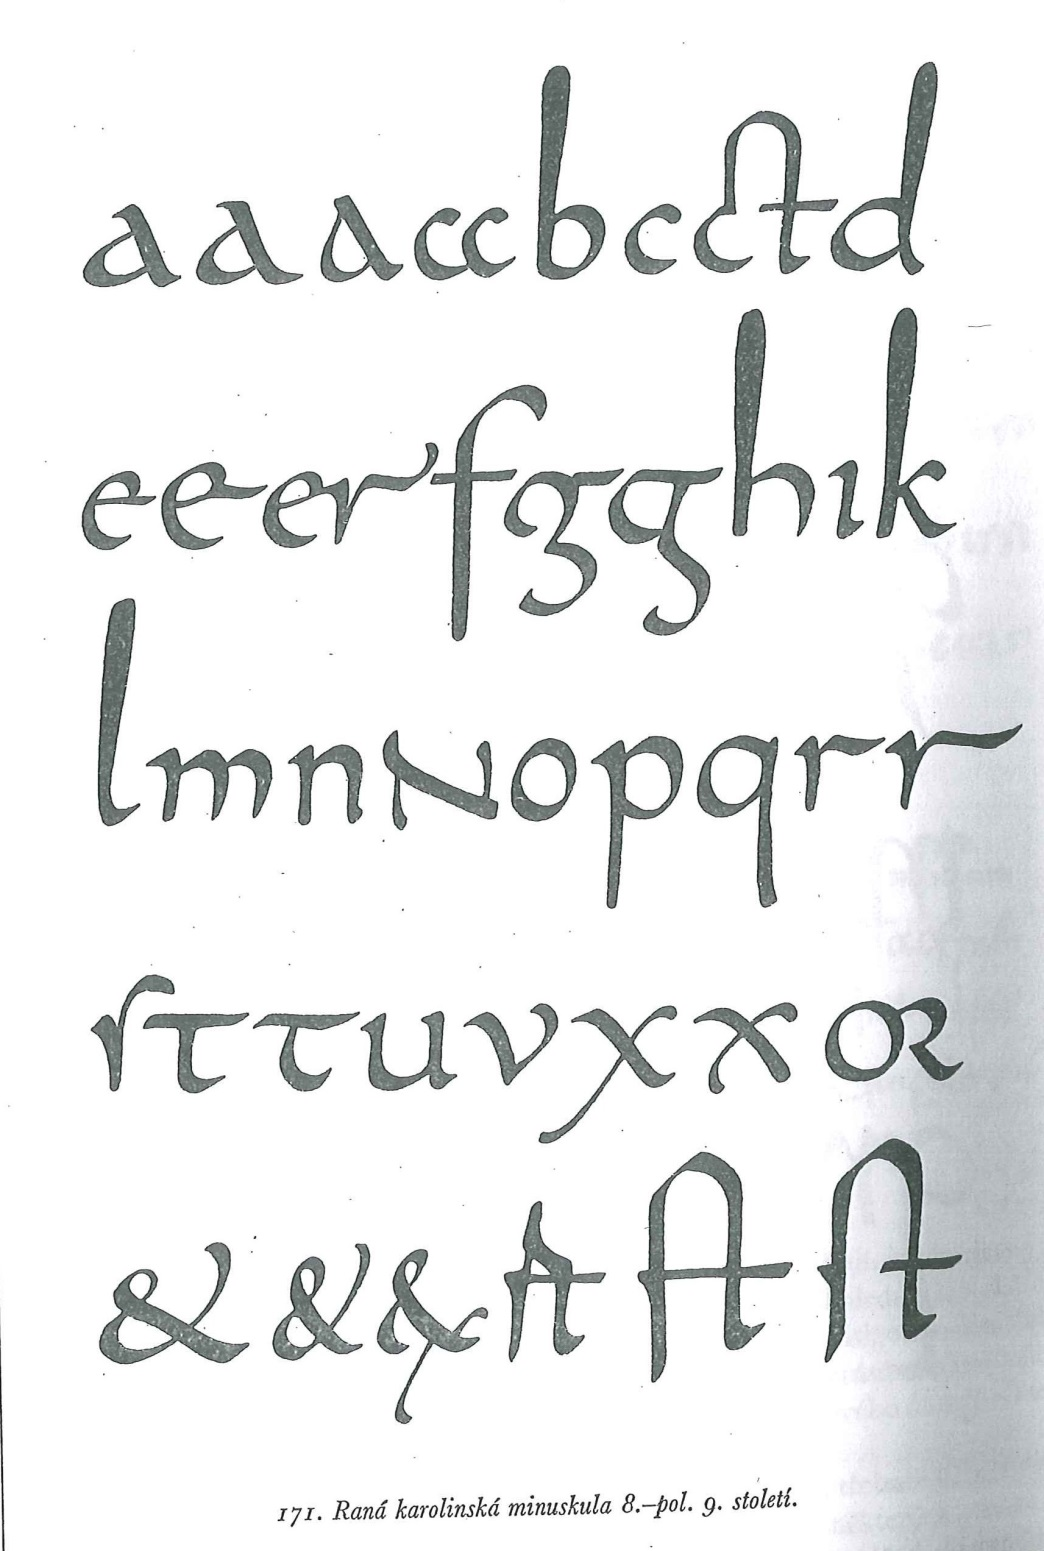 aaaccbccctd
eeerfgghik
lmnNopqrr
ſttuvxxor
&&&rtftſt
171. Raná karolinská minuskula 8.–pol. 9. století.